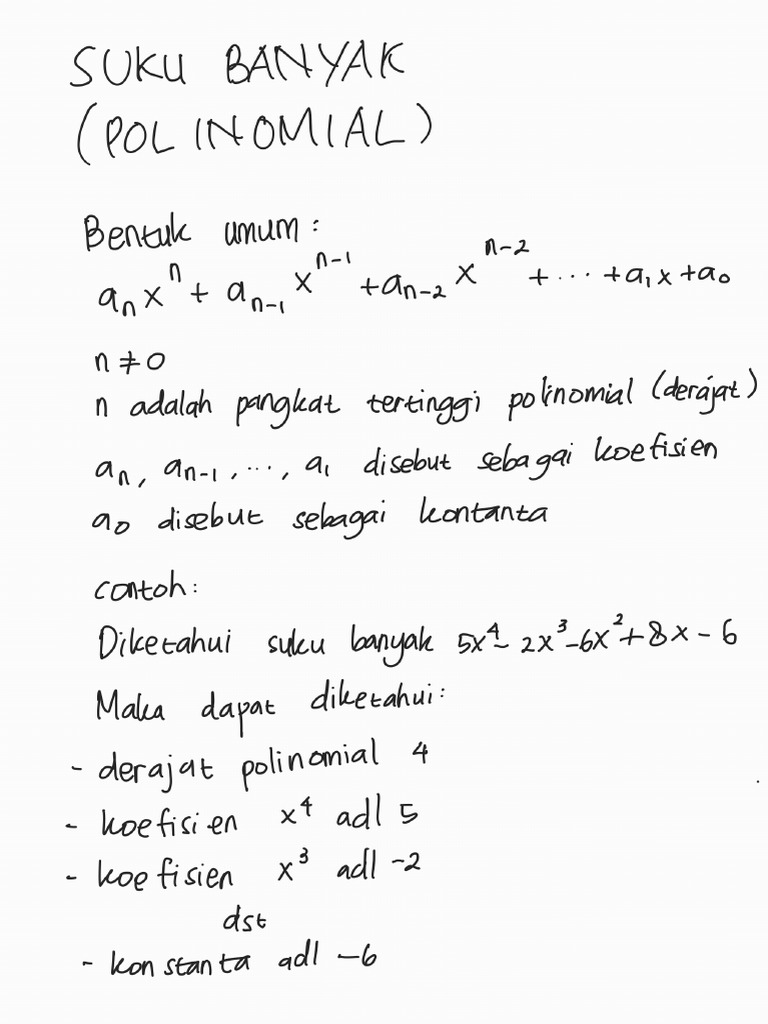 SUKU BANYAK
(POLINOMIAL)
Bentuk umum:
aₙxⁿ + aₙ₋₁xⁿ⁻¹ + aₙ₋₂xⁿ⁻² + ... + a₁x + a₀
n ≠ 0
n adalah pangkat tertinggi polinomial (derajat)
aₙ, aₙ₋₁, ..., a₁ disebut sebagai koefisien
a₀ disebut sebagai kontanta
contoh:
Diketahui suku banyak 5x⁴ - 2x³ - 6x² + 8x - 6
Maka dapat diketahui:
- derajat polinomial 4
- koefisien x⁴ adl 5
- koefisien x³ adl -2
dst
- konstanta adl -6